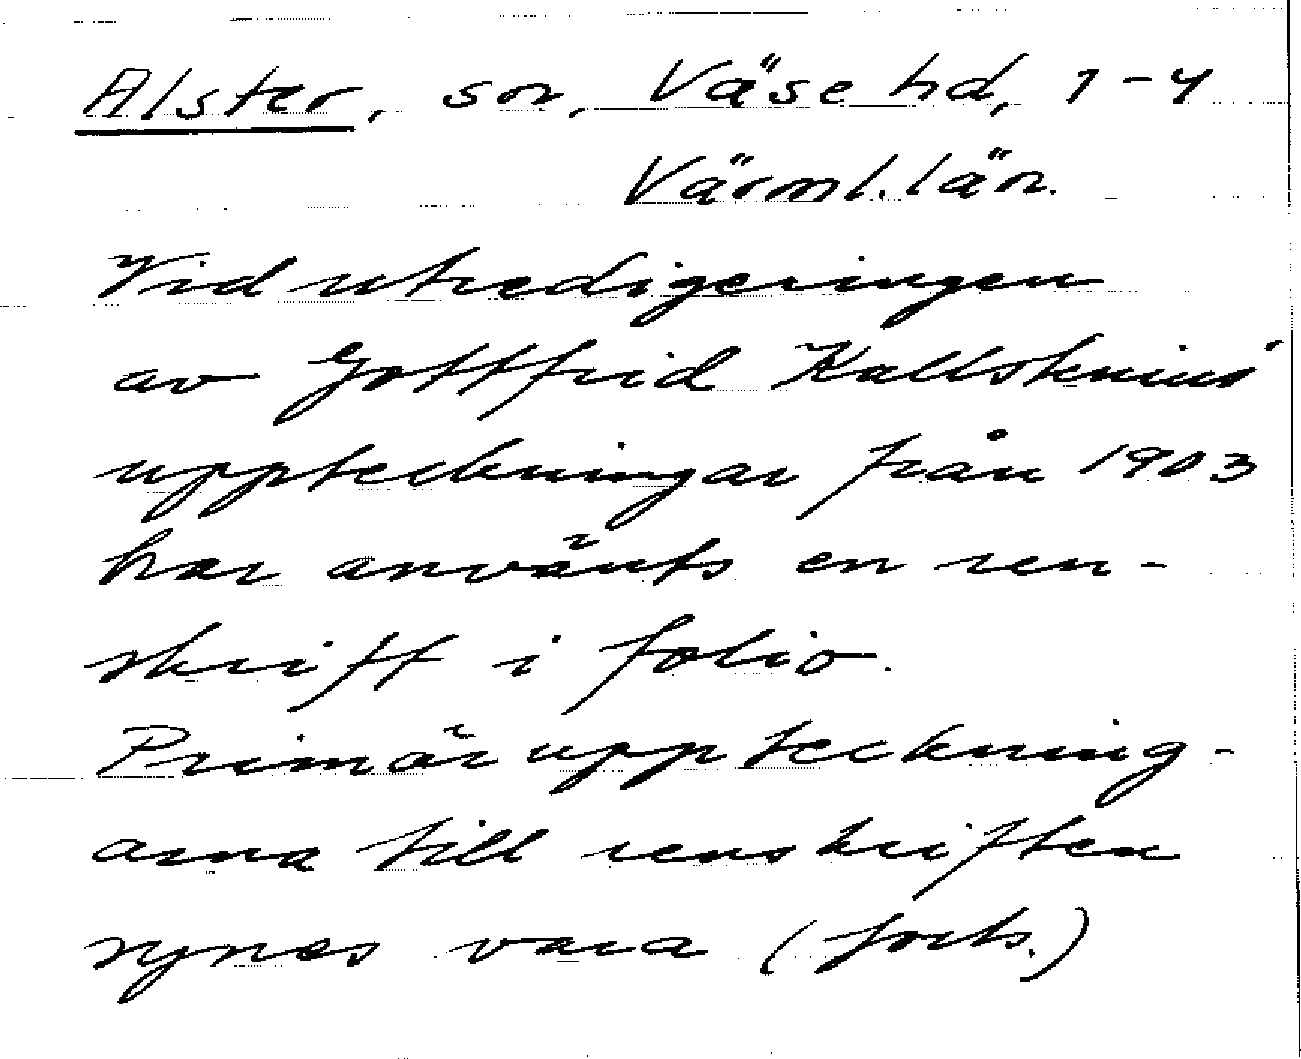 Alster, sn, Väse hd, 1-4
Värml. län.
Vid utredigeringen
av Gottfrid Kallstenius'
uppteckningar från 1903
har använts en ren-
skrift i folio.
Primäruppteckning-
arna till renskriften
synes vara (forts.)